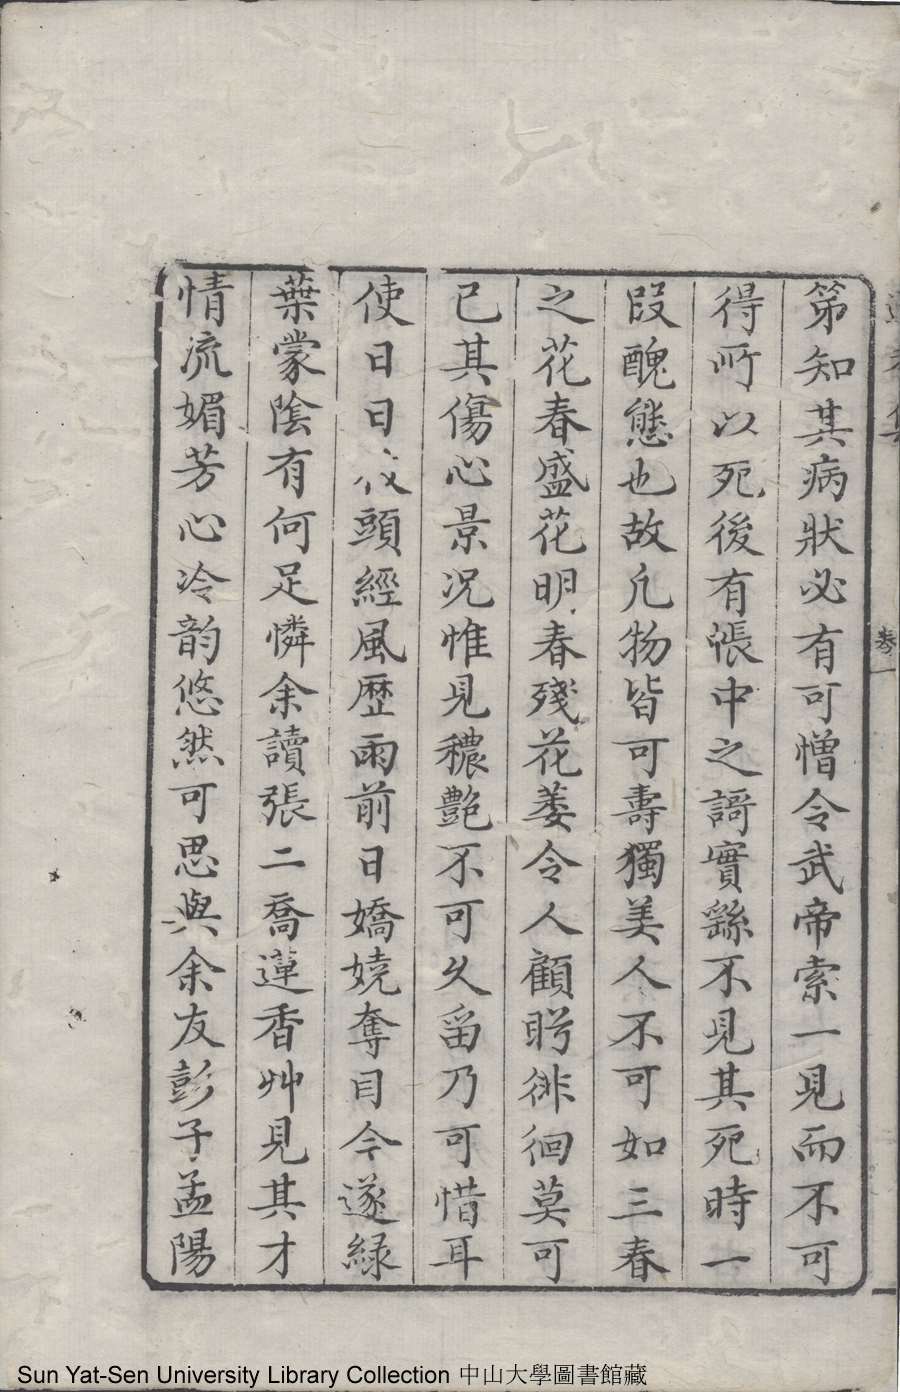 第知其病狀必有可憎令武帝索一見而不可
得所以死後有悵中之謌實繇不見其死時一
段醜態也故凢物皆可壽獨美人不可如三春
之花春盛花明春殘花萎令人顧眄徘徊莫可
已其傷心景况惟見穠艷不可久畱乃可惜耳
使日日枝頭經風歷雨前日嬌嬈奪目今遂緑
葉蒙陰有何足憐余讀張二喬蓮香艸見其才
情流媚芳心冷韵悠然可思與余友彭子孟陽
卷一
Sun Yat-Sen University Library Collection 中山大學圖書館藏